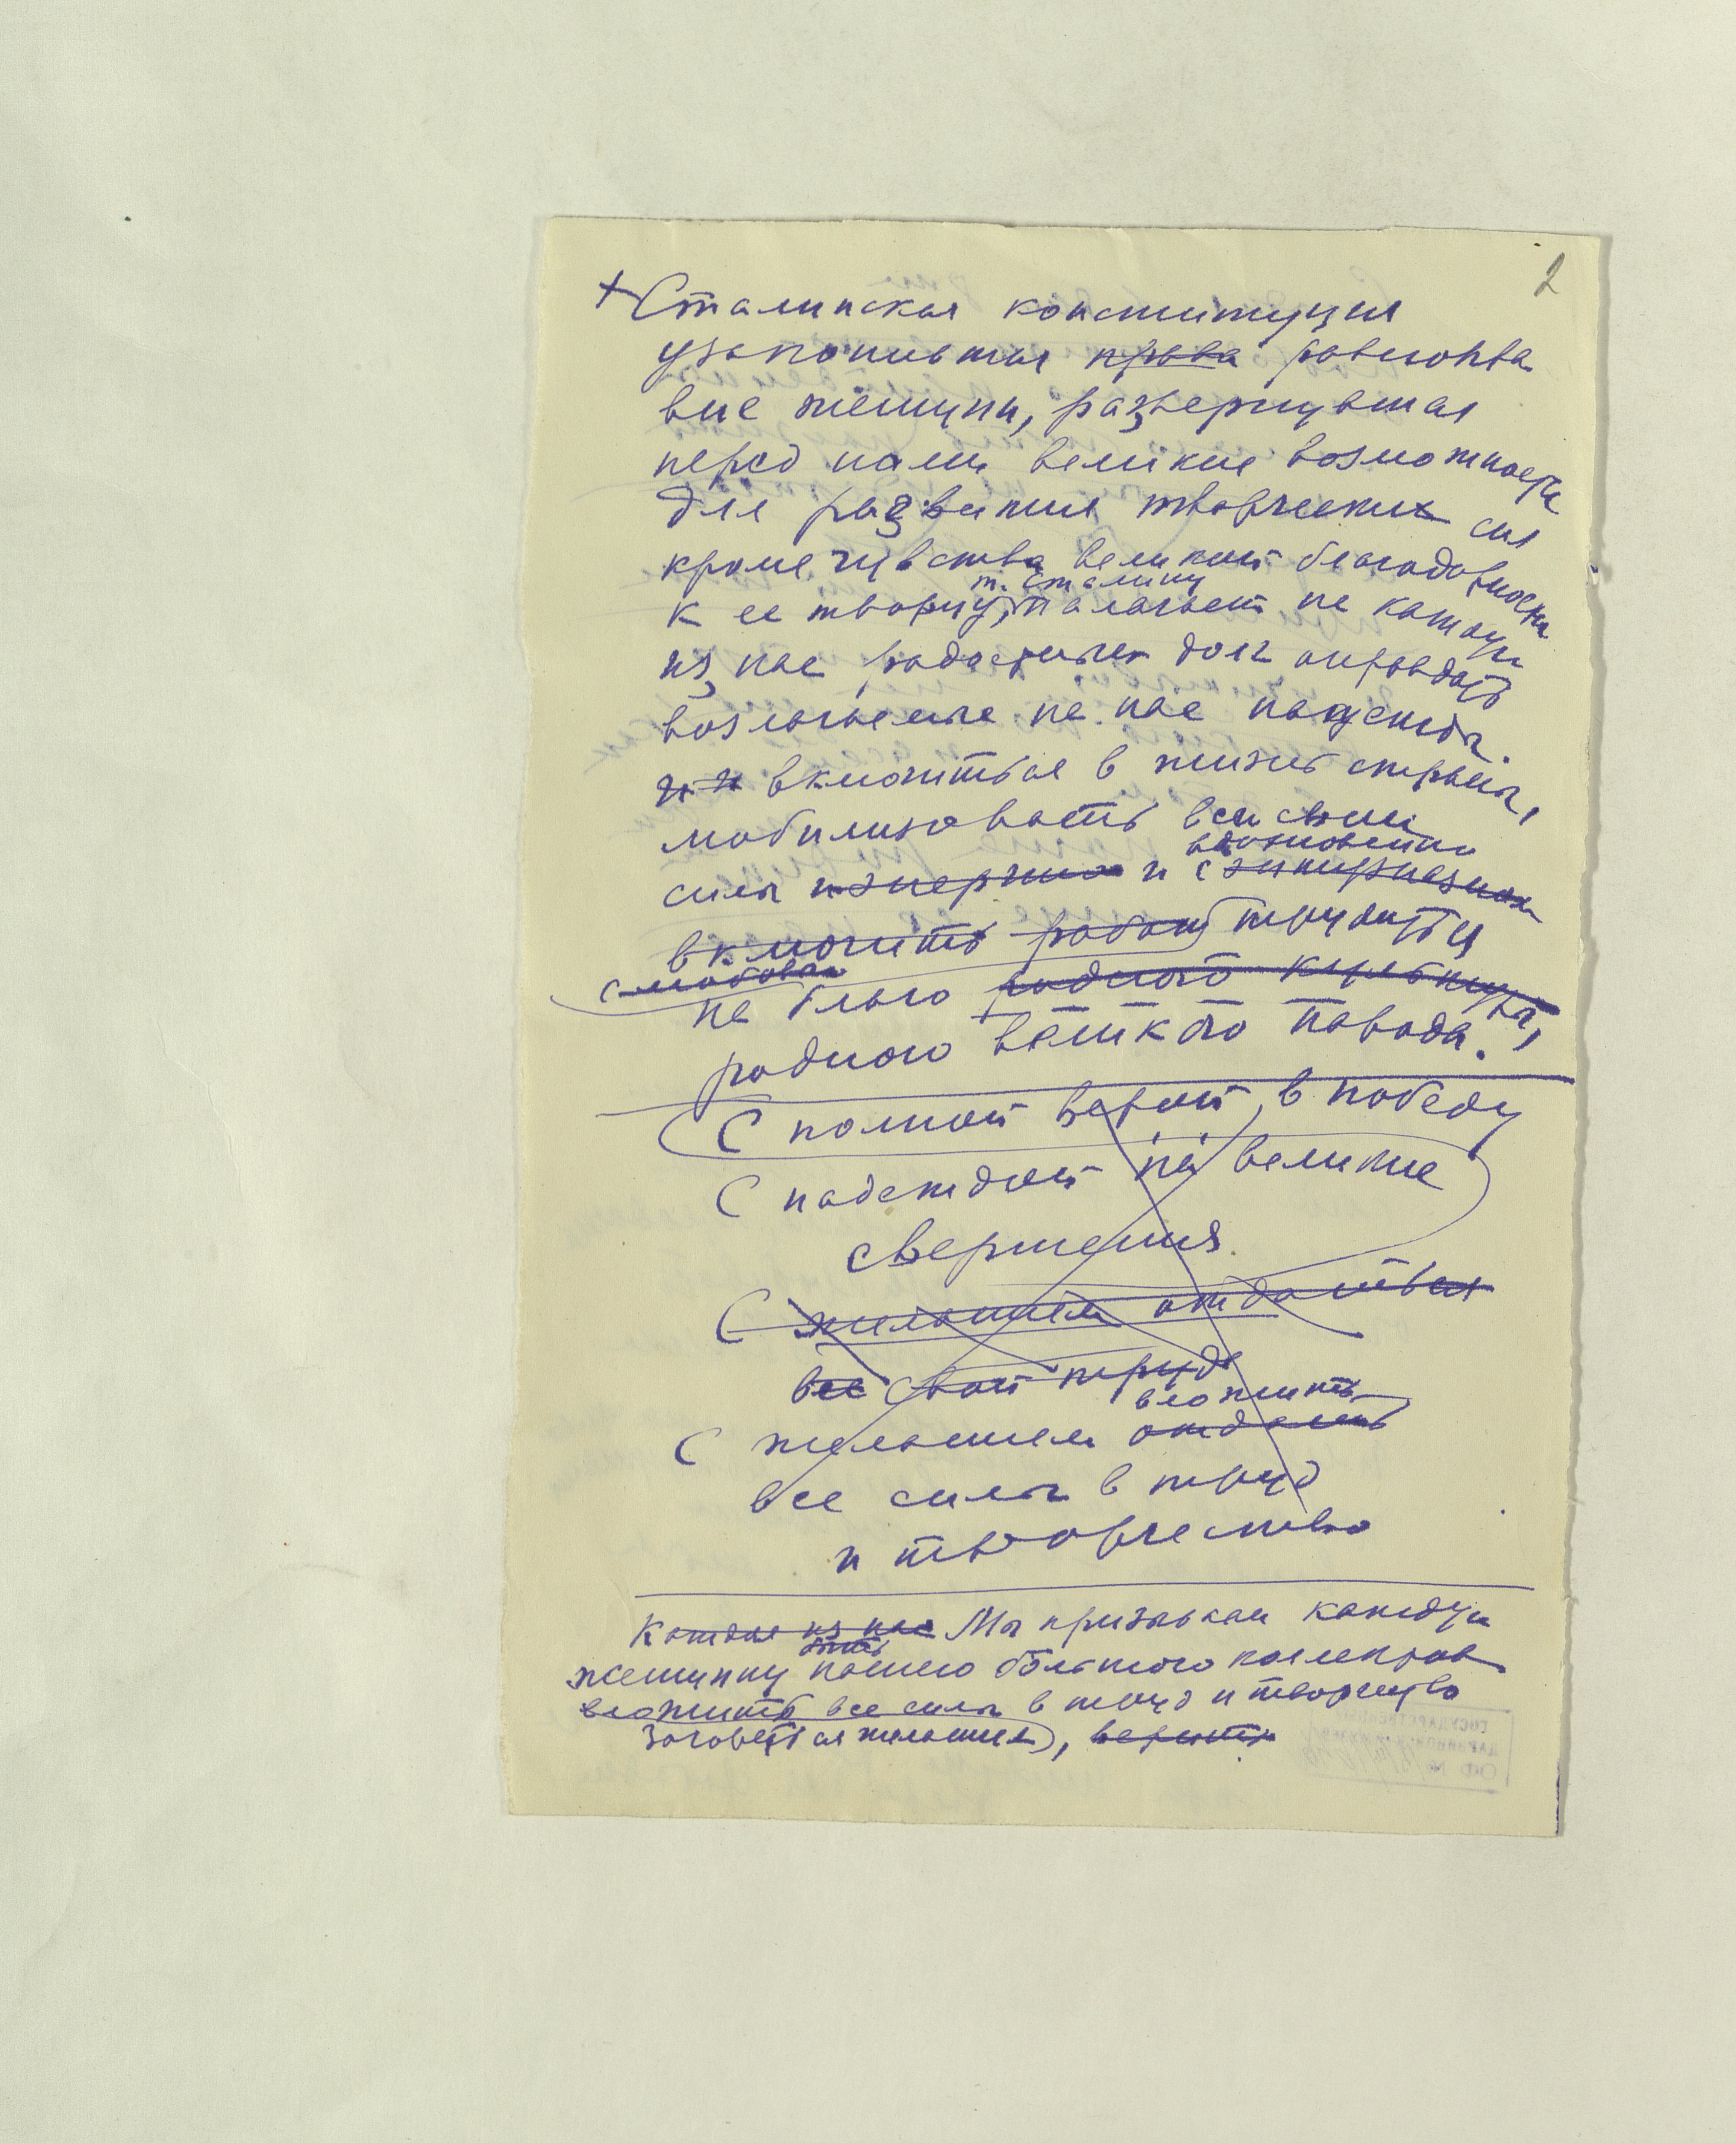 2
+ Сталинская конституция
узаконившая права равенства
вне женщин, развернувшая
перед нами великие возможности
для развития творческих сил
кроме чувства великой благодарности
т. Сталину
к ее творцу, налагает на каждую
из нас радостный долг оправдать
возлагаемые на нас надежды
включиться в жизнь страны,
мобилизовать все свои
вдохновенно
силы и энергию и с энтузиазмом
включить работу трудиться
с любовью
на благо родного культуры,
родного великого народа.
С полной верой, в победу
С надеждой на великие
свершения
С желанием отдаться
все свой труд
вложить
С желанием отдать
все силы в труд
и творчество
Каждая из нас Мы призываем каждую
женщину нашего большого коллектива
вложить все силы в труд и творчество
желанием),
ГОСУДАРСТВЕН
ДАРВИНОВСКИЙ